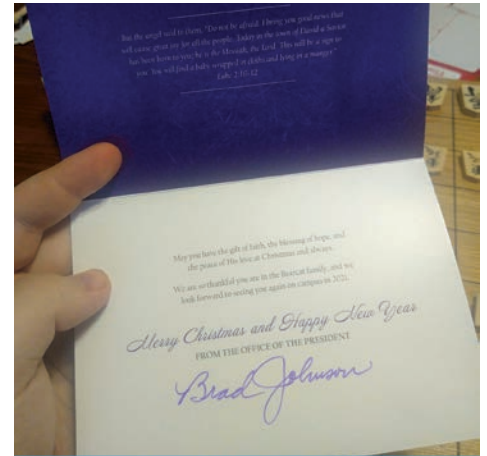 But the angel said to them, "Do not be afraid. I bring you good news that
will cause great joy for all the people. Today in the town of David a Savior
has been born to you; he is the Messiah, the Lord. This will be a sign to
you: You will find a baby wrapped in cloths and lying in a manger."
Luke 2:10-12
May you have the gift of faith, the blessing of hope, and
the peace of His love at Christmas and always.
We are so thankful you are in the Bearcat family, and we
look forward to seeing you again on campus in 2021.
Merry Christmas and Happy New Year
FROM THE OFFICE OF THE PRESIDENT
Brad Johnson